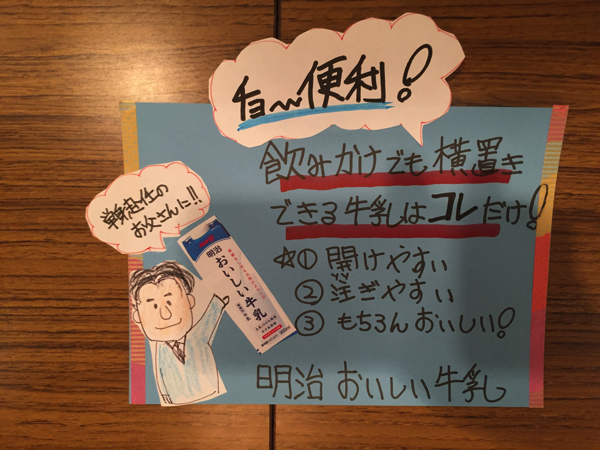 チョー便利!
飲みかけでも横置き
できる牛乳はコレだけ!
単身赴任の
お父さんに!!
明治
おいしい牛乳
☆① 開けやすい
② 注ぎやすい
③ もちろんおいしい!
明治 おいしい牛乳